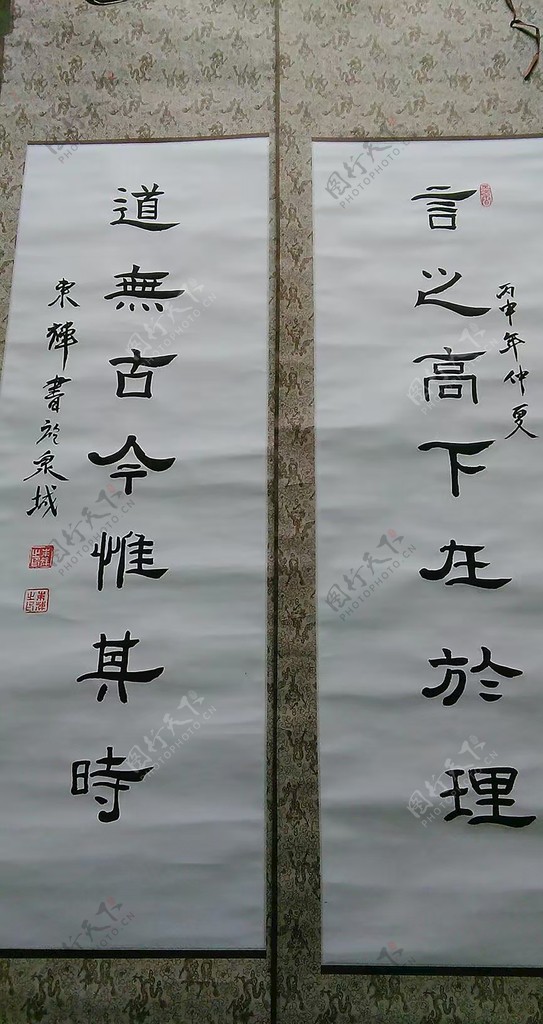 言之高下在於理
丙申年仲夏
道無古今惟其時
東輝書於泉城
图行天下
PHOTOPHOTO.CN